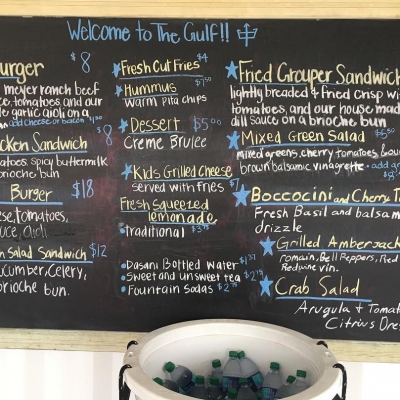 Welcome to The Gulf!!
Burger $8
meyer ranch beef
tomatoes and our
garlic aioli on a
add cheese or bacon
Sandwich $8
spicy buttermilk
brioche bun
Burger $18
tomatoes,
aioli
Salad Sandwich $12
cucumber, celery,
brioche bun.
Fresh Cut Fries $4
Hummus
warm pita chips
Dessert $5.00
Creme Brulee
Kids Grilled Cheese
served with fries $7
Fresh squeezed
lemonade
Traditional
Dasani Bottled Water
Sweet and unsweet tea
Fountain Sodas
Fried Grouper Sandwich
lightly breaded & fried crisp
tomatoes, and our house mad
dill sauce on a brioche bun
Mixed Green Salad
mixed greens, cherry tomatoes,
brown balsamic vinagrette. add
Boccocini and Cherry
Fresh Basil and balsam
drizzle
Grilled Amberjack
romain, Bell Peppers, Red
Redwine vin.
Crab Salad
Arugula + Tomat
Citrus Dre